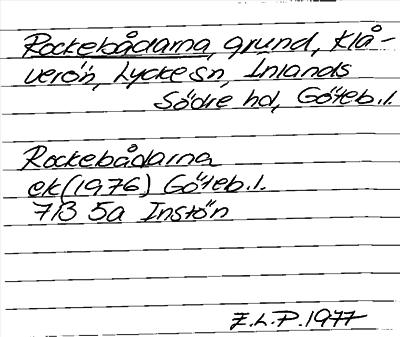 Rockebådarna, grund, Klå-
verön, Lycke sn, Inlands
Södre hd, Göteb.l.
Rockebådarna
ek (1976) Göteb.l.
7B 5a Instön
F.L.P. 1977